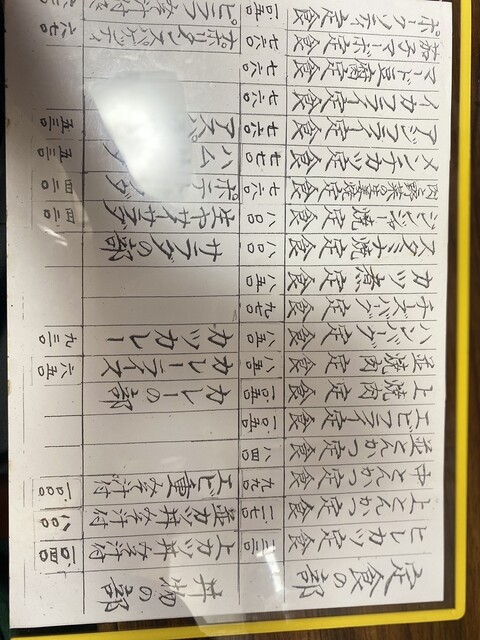 定食の部
ヒレカツ定食
上とんかつ定食
中とんかつ定食 九九〇
並とんかつ定食 八四〇
エビフライ定食 一〇五〇
上焼肉定食 一〇五〇
並焼肉定食 八五〇
ハンバーグ定食 八五〇
チーズハンバーグ定食 九七〇
カツ煮定食 八五〇
スタミナ焼定食 八〇〇
ジンジャー焼定食 八〇〇
肉と野菜の生姜焼定食 七六〇
メンチカツ定食 七七〇
アジフライ定食 七六〇
イカフライ定食 七六〇
マーボ豆腐定食 七六〇
茄子マーボ定食 七六〇
ポークソティ定食 一〇五〇
丼物の部
上カツ丼みそ汁付 一〇四〇
並カツ丼みそ汁付 八〇〇
エビ重みそ汁付
カレーの部
カレーライス 六五〇
カツカレー 九三〇
サラダの部
生ヤサイサラダ 四二〇
ポテ ダ 四二〇
ハム 五三〇
アスパ 五三〇
スパゲッティ 六七〇
ピラフみそ汁付